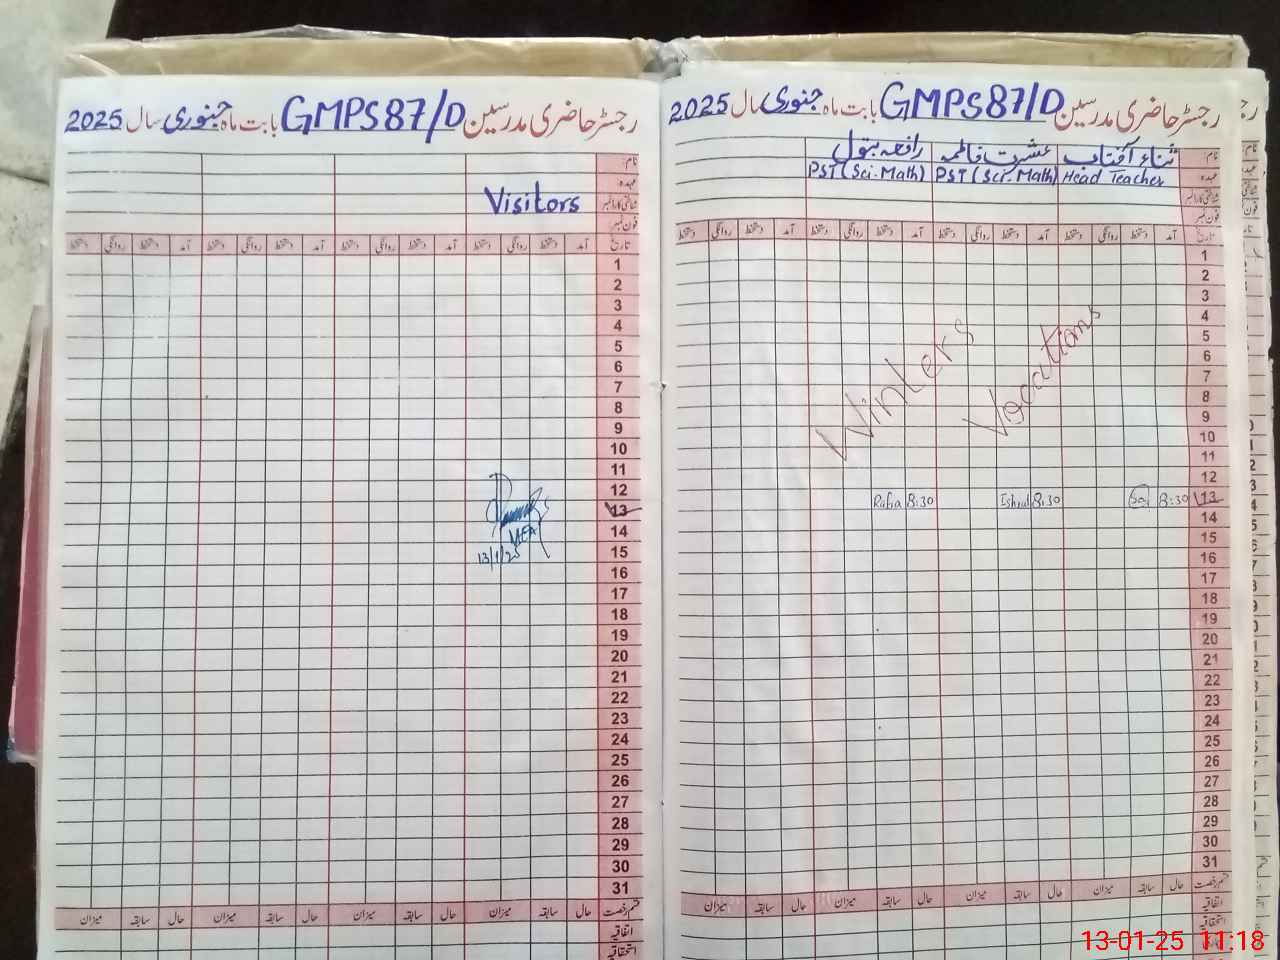 رجسٹر حاضری مدرسین GMPS 87/D بابت ماہ جنوری سال 2025
نام:
عہدہ:
شناختی کارڈ نمبر
Visitors
فون نمبر
تاریخ آمد دستخط روانگی دستخط آمد دستخط روانگی دستخط آمد دستخط روانگی دستخط آمد دستخط روانگی دستخط
1
2
3
4
5
6
7
8
9
10
11
12
13
14
15
13/1/25
16
17
18
19
20
21
22
23
24
25
26
27
28
29
30
31
قسم رخصت حال سابقہ میزان حال سابقہ میزان حال سابقہ میزان حال سابقہ میزان
اتفاقیہ
استحقاقیہ
رجسٹر حاضری مدرسین GMPS 87/D بابت ماہ جنوری سال 2025
نام: ثناء آفتاب عشرت فاطمہ رافعہ بتول
عہدہ: Head Teacher PST (Sci. Math) PST (Sci. Math)
شناختی کارڈ نمبر
فون نمبر
تاریخ آمد دستخط روانگی دستخط آمد دستخط روانگی دستخط آمد دستخط روانگی دستخط آمد دستخط روانگی دستخط
1
2
3
4
5
6
7
8
9
10
11
12
Winters Vocations
13 8:30 8:30 Ishrat 8:30 Rafia
14
15
16
17
18
19
20
21
22
23
24
25
26
27
28
29
30
31
قسم رخصت حال سابقہ میزان حال سابقہ میزان حال سابقہ میزان حال سابقہ میزان
اتفاقیہ
استحقاقیہ
13-01-25 11:18